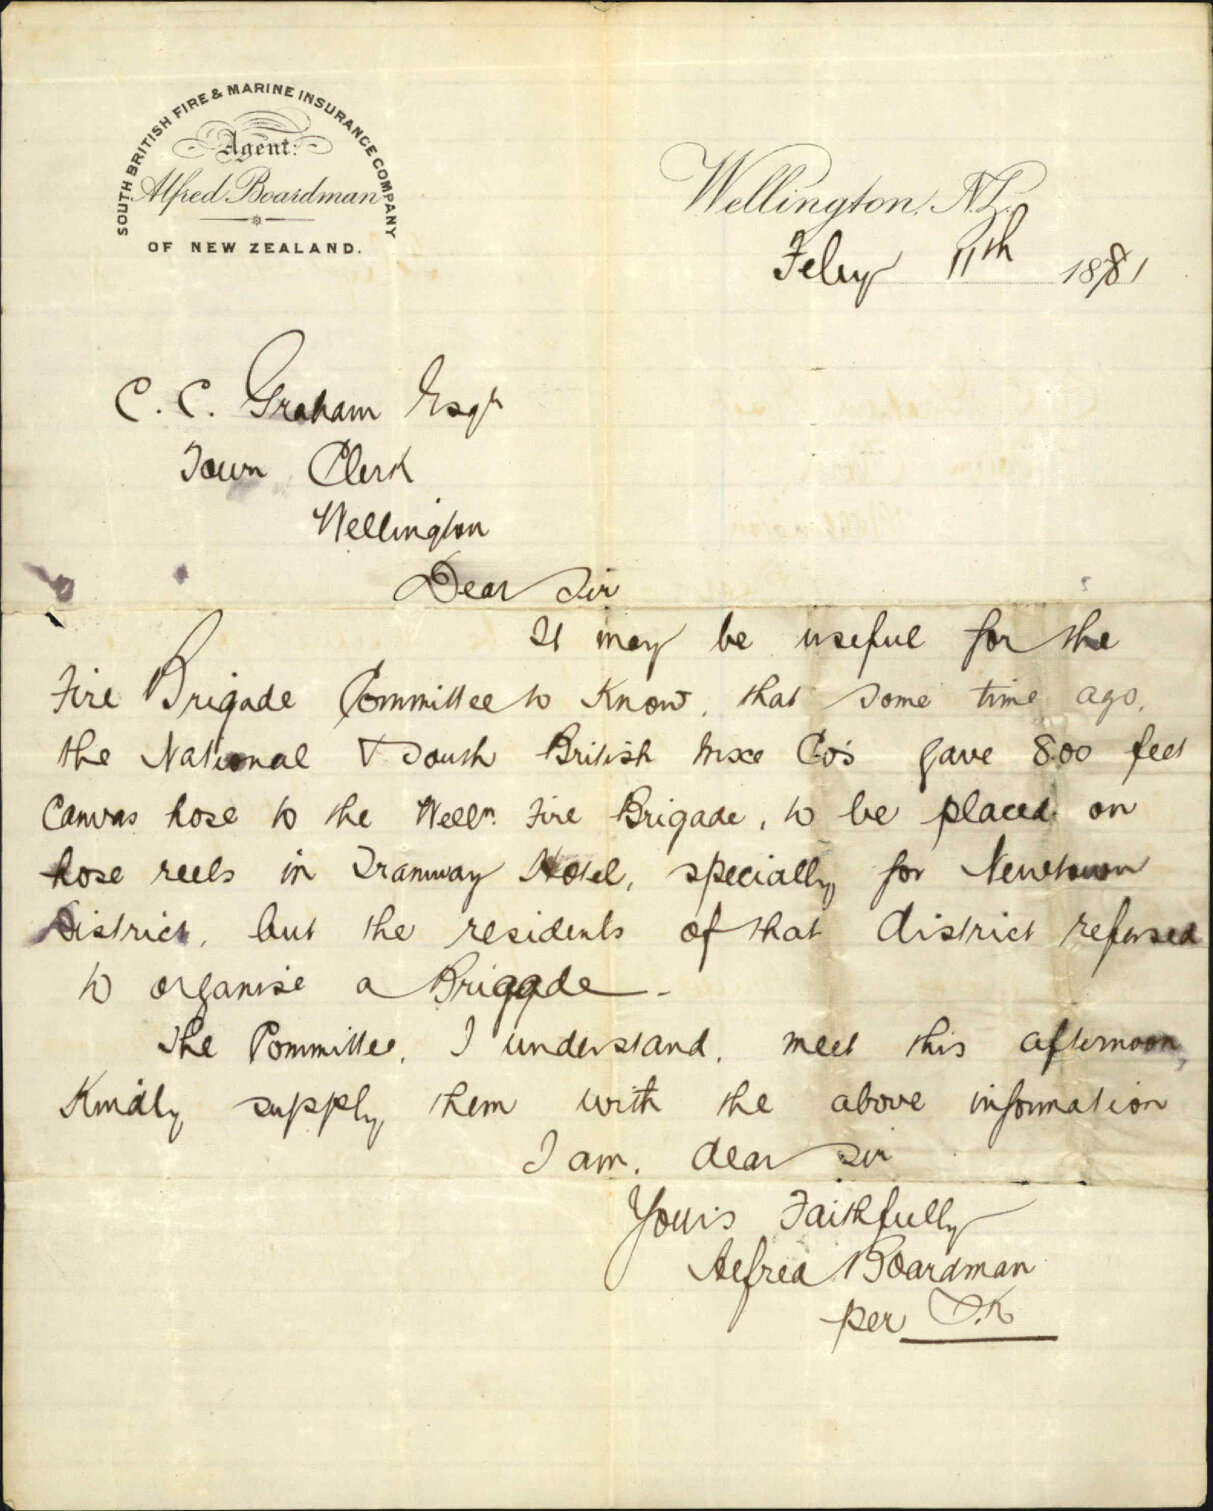 SOUTH BRITISH FIRE & MARINE INSURANCE COMPANY
Agent:
Alfred Boardman
OF NEW ZEALAND.
Wellington, N.Z.
Feby 11th 1881
C. C. Graham Esqr
Town Clerk
Wellington
Dear Sir
It may be useful for the
Fire Brigade Committee to know, that some time ago,
the National & South British Insce Co's gave 800 feet
Canvas hose to the Welln. Fire Brigade, to be placed on
hose reels in Tramway Hotel, specially for Newtown
District, but the residents of that district refused
to organise a Brigade -
The Committee, I understand, meet this afternoon,
Kindly supply them with the above information
I am, dear sir
Yours Faithfully
Alfred Boardman
per